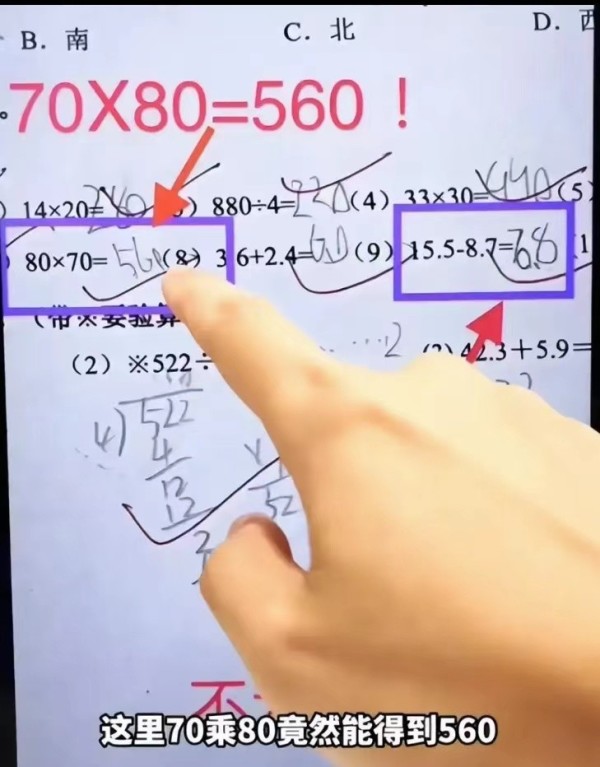 B. 南 C. 北 D.
70X80=560！
) 14×20=280 ) 880÷4=220 (4) 33×30= (5)
80×70=560 (8) 3.6+2.4=6.0 (9) 15.5-8.7=6.8
(带※要验算
……2
(2) ※522÷ 42.3+5.9=
4)522
4
12
12
2
不
这里70乘80竟然能得到560